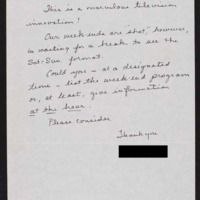 This is a marvelous television
innovation!
Our week-ends are "shot," however,
in waiting for a break to see the
Sat-Sun. format.
Could you - at a designated
time - list the week-end program
or, at least, give information
at the hour.
Please consider
Thank you